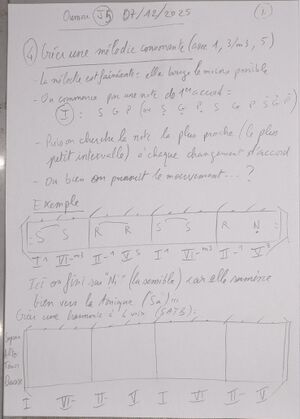 07/12/2025
④ Créer une mélodie consonante (avec 1, 3/m3, 5)
- La mélodie est fainéante : elle bouge le moins possible
- On commence par une note du 1er accord :
I : S G P (ou S G P, S G P, S G P)
- Puis on cherche la note la plus proche (le plus
petit intervalle) à chaque changement d'accord
- Ou bien on poursuit le mouvement... ?
Exemple
S S R R S S R N
I1 VI-m3 II-1 V5 I1 VI-m3 II-1 V3
Ici on finit sur "Ni" (la sensible) car elle ramène
bien vers la tonique (Sa) !!!
Créer une harmonie à 4 voix (SATB) :
Sopra
Alto
Tenor
Basse
I VI- II- V I VI- II- V